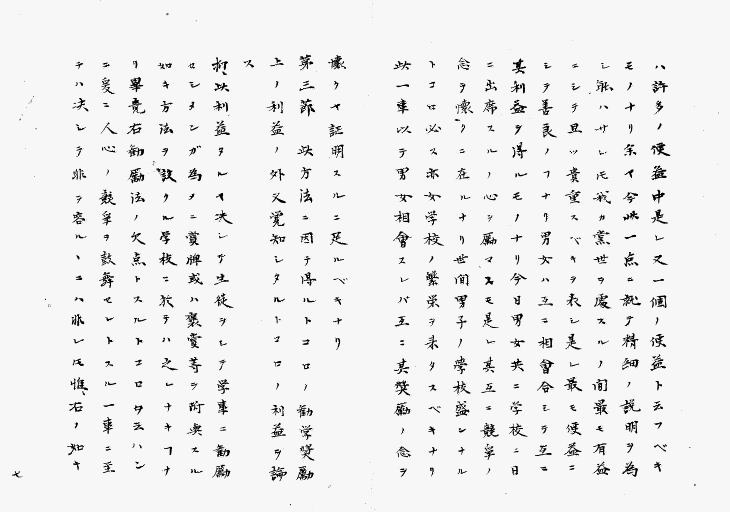 ハ許多ノ便益中是レ又一個ノ便益ト云フベキ
モノナリ余ヤ今此一点ニ就テ精細ノ説明ヲ為
シ能ハサレ𪜈我カ党世ヲ處スルノ間最モ有益
ニシテ且ツ貴重スベキヲ表シ是レ最モ便益ニ
シテ善良ノフナリ男女ハ互ニ相會合シテ互ニ
其利益ヲ得ルモノナリ今日男女共ニ学校ニ日
ニ出席スルノ心ヲ勵マスモ是レ其互ニ競争ノ
念ヲ懐クニ在ルナリ世間男子ノ學校盛ンナル
トコロ必ス亦女学校ノ繁栄ヲ来タスベキナリ
此一事以テ男女相會スレバ互ニ其奨勵ノ念ヲ
懐クヤ証明スルニ足ルベキナリ
第三節 此方法ニ因テ得ルトコロノ勧学奨勵
上ノ利益ノ外又覚知シタルトコロノ利益ヲ論
ス
抑此利益タルヤ决シテ生徒ヲシテ学事ニ勧勵
セシメンガ為メニ賞牌或ハ褒賞等ヲ附與スル
如キ方法ヲ設クル学校ニ於テハ之レナキフナ
リ畢竟右勧勵法ノ欠点トスルトコロタ云ハン
ニ爰ニ人心ノ競争ヲ鼓舞セントスル一事ニ至
テハ决シテ非ヲ容ル丶ニハ非レ𪜈惟右ノ如キ
七